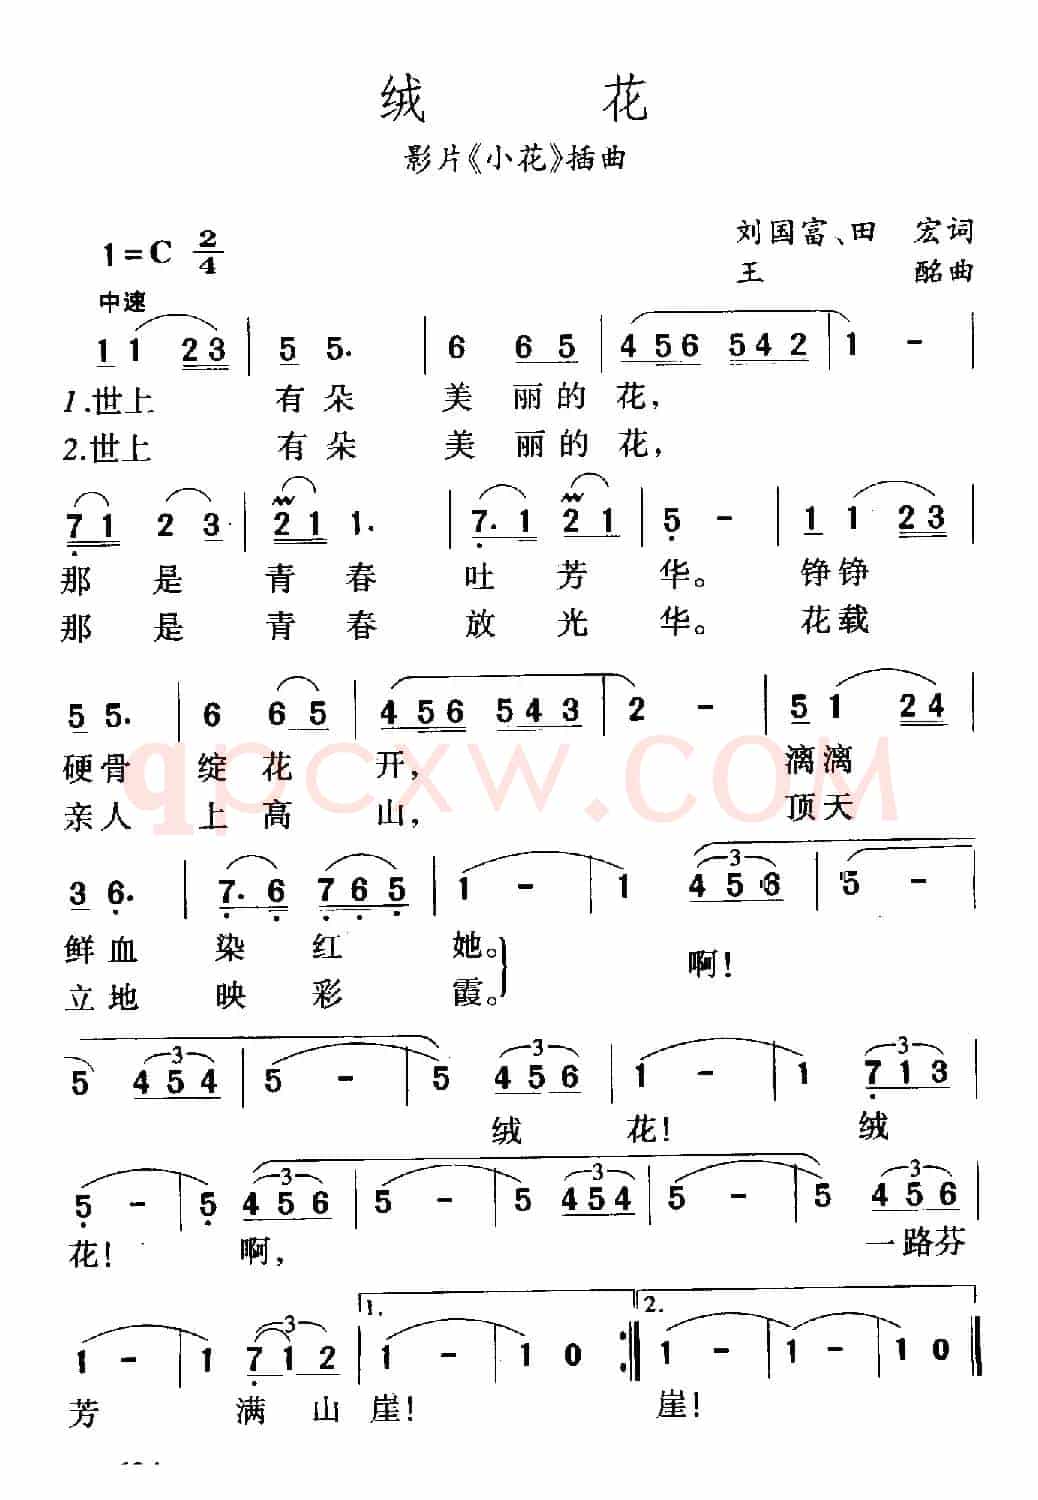 绒 花
影片《小花》插曲
1=C 2/4
刘国富、田 宏词
中速
王 酩曲
1 1 2 3 | 5 5. | 6 6 5 | 4 5 6 5 4 2 | 1 - |
1.世上 有朵 美丽的花,
2.世上 有朵 美丽的花,
7 1 2 3 | 2 1 1. | 7. 1 2 1 | 5 - | 1 1 2 3 |
那是青春吐芳华。 铮铮
那是青春放光华。 花载
5 5. | 6 6 5 | 4 5 6 5 4 3 | 2 - | 5 1 2 4 |
硬骨绽花开, 漓漓
亲人上高山, 顶天
qpcxw.COM
3 6. | 7. 6 7 6 5 | 1 - | 1 4 5 6 | 5 - |
鲜血染红她。 啊!
立地映彩霞。
5 4 5 4 | 5 - | 5 4 5 6 | 1 - | 1 7 1 3 |
绒 花! 绒
5 - | 5 4 5 6 | 5 - | 5 4 5 4 | 5 - | 5 4 5 6 |
花! 啊, 一路芬
1. 2.
1 - | 1 7 1 2 | 1 - | 1 0 :| 1 - | 1 - | 1 0 ‖
芳 满山崖! 崖!